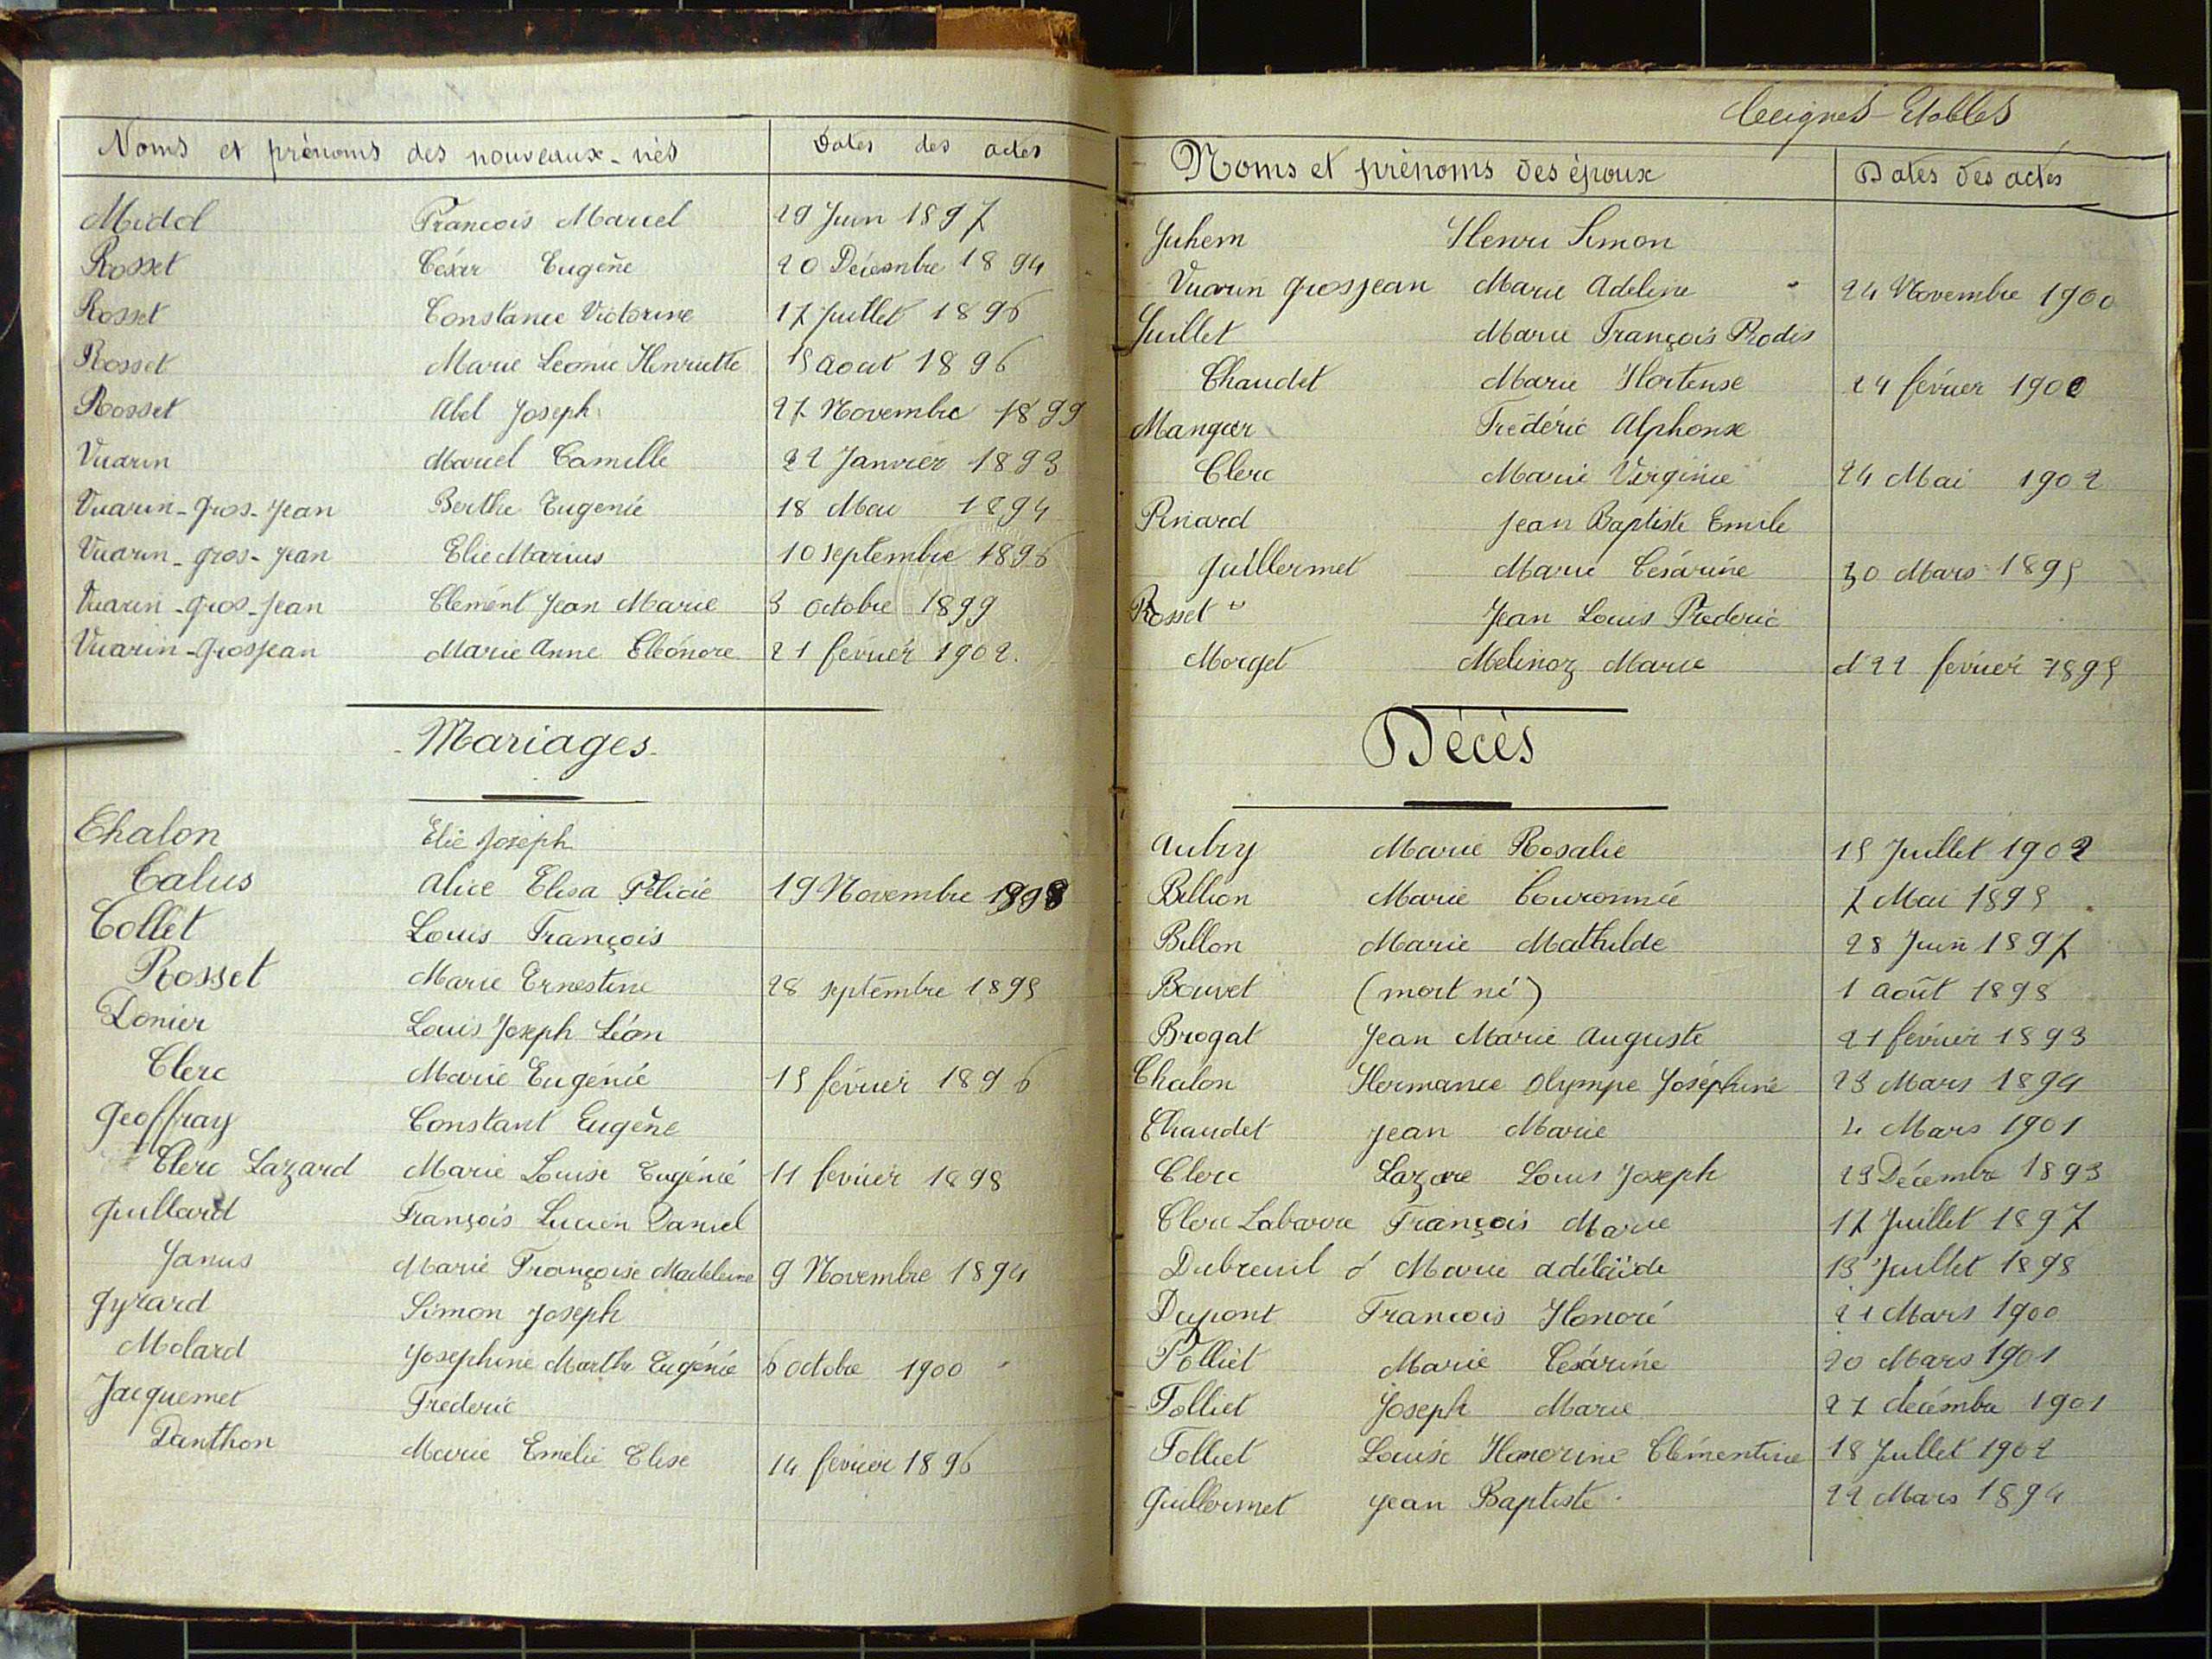 Noms et prénoms des nouveaux-nés Dates des actes
Midol François Marcel 29 Juin 1897
Rosset César Eugène 20 Décembre 1894
Rosset Constance Victorine 17 Juillet 1896
Rosset Marie Leonie Henriette 15 Aout 1896
Rosset Abel Joseph 27 Novembre 1899
Vuarin Marcel Camille 22 Janvier 1893
Vuarin-Gros-Jean Berthe Eugenie 18 Mai 1894
Vuarin-gros-Jean Elie Marius 10 septembre 1896
Vuarin-Gros-Jean Clement Jean Marie 3 octobre 1899
Vuarin-Grosjean Marie Anne Eléonore 21 février 1902.
Mariages
Chalon Elie Joseph
Calus Alice Elisa Félicie 19 Novembre 1898
Collet Louis François
Rosset Marie Ernestine 28 septembre 1895
Donier Louis Joseph Léon
Clerc Marie Eugénie 15 février 1896
Geoffray Constant Eugène
Clerc Lazard Marie Louise Eugénie 11 fevrier 1898
Guillard François Lucien Daniel
Janus Marie Françoise Madeleine 9 Novembre 1894
Gyrard Simon Joseph
Molard Josephine Marthe Eugénie 6 octobre 1900
Jacquemet Frederic
Danthon Marie Emelie Elise 14 février 1896
Ceignes-Etables
Noms et prénoms des époux Dates des actes
Juhem Henri Simon
Vuarin Grosjean Marie Adeline 24 Novembre 1900
Juillet Marie François Rodes
Chaudet Marie Hortense 24 février 1900
Mangier Frédéric Alphonse
Clerc Marie Virginie 24 Mai 1902
Pinard Jean Baptiste Emile
Guillermet Marie Césarine 30 Mars 1895
Rosset Jean Louis Frederic
Morget Melinoz Marie 22 fevrier 1895
Décès
Aubry Marie Rosalie 15 Juillet 1902
Billion Marie Couronnée 7 Mai 1895
Billon Marie Mathilde 28 Juin 1897
Bouvet (mort né) 1 août 1898
Brogat Jean Marie Auguste 21 février 1893
Chalon Hermance Olympe Joséphine 23 Mars 1894
Chaudet Jean Marie 4 Mars 1901
Clerc Lazare Louis Joseph 23 Décembre 1893
Clerc Labarre François Marie 17 Juillet 1897
Dubreuil d Marie adélaïde 13 Juillet 1898
Dupont Francois Honoré 21 Mars 1900
Folliet Marie Césarine 20 Mars 1901
Folliet Joseph Marie 27 décembre 1901
Folliet Louise Honorine Clémentine 18 Juillet 1902
Guillermet Jean Baptiste 22 Mars 1894